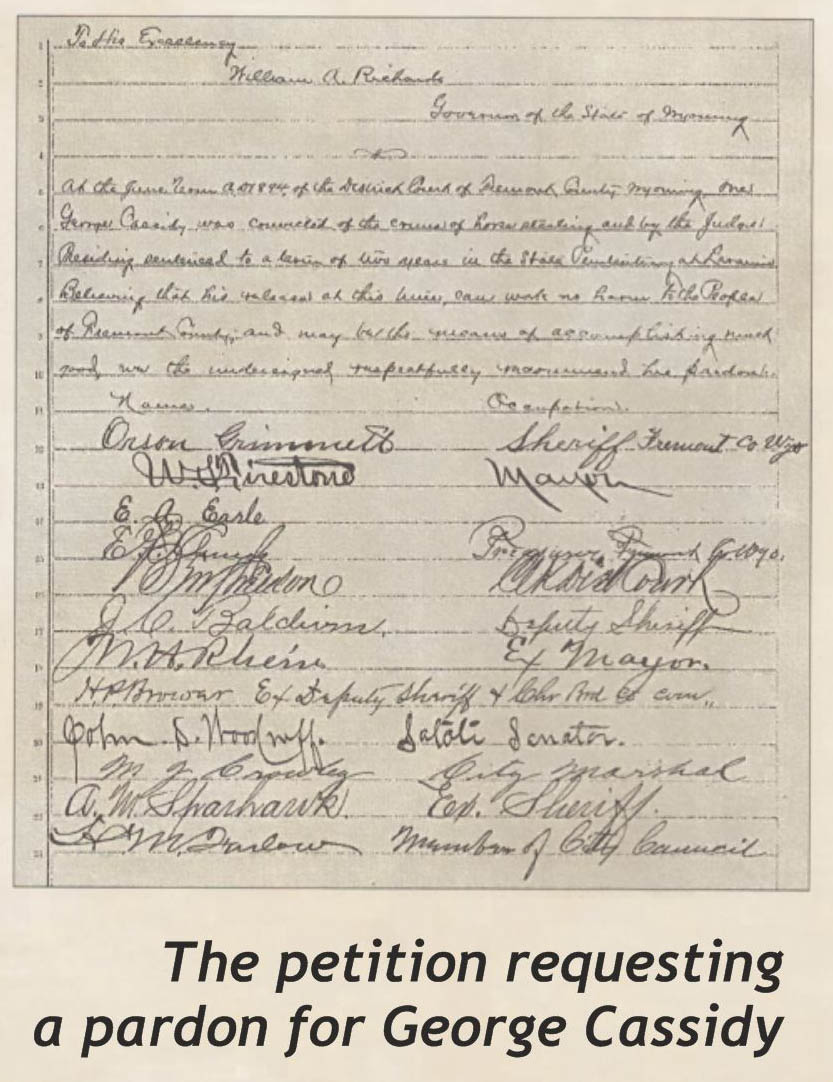 To His Excellency
William A. Richards
Governor of the State of Wyoming
At the June Term A.D. 1894, of the District Court of Fremont County Wyoming one
George Cassidy was convicted of the crime of horse stealing and by the Judge
Presiding sentenced to a term of two years in the State Penitentiary at Laramie
Believing that his release at this time, can work no harm to the People
of Fremont County, and may be the means of accomplishing much
good, we the undersigned respectfully recommend his pardon.
Name. Occupation.
Orson Grimmett Sheriff Fremont Co Wyo
W. S. Firestone Mayor
E. A. Earle
Treasurer Fremont Co Wyo.
J. C. Baldwin. Deputy Sheriff
M. H. Rhein. Ex Mayor.
H. P. Brower Ex Deputy Sheriff & Chr Co com
John D. Woodruff. State Senator.
M J Crowley City Marshal
A. W. Sparhawk Ex. Sheriff.
M. Farlow Member of City Council
The petition requesting
a pardon for George Cassidy